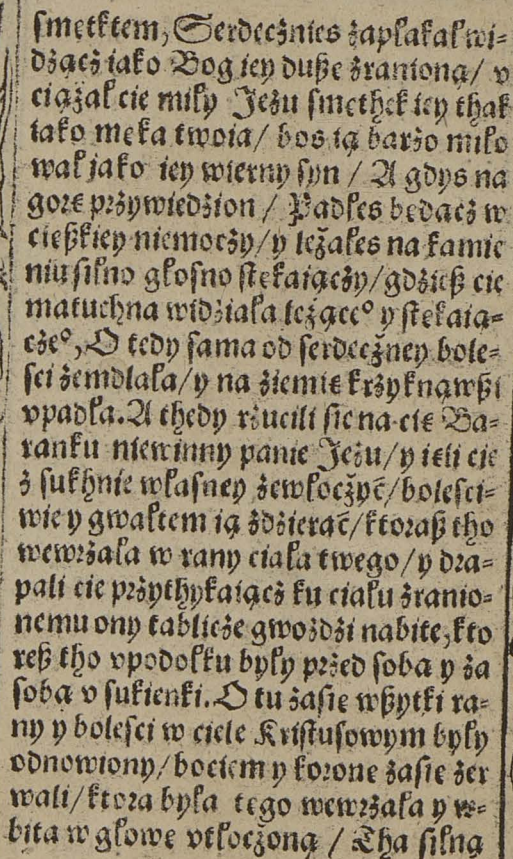 smętktem, Serdecżnies żapłakał wi⸗
dżącż iako Bog iey duße żraniona/ v
ciążał cie miły Jeżu smethek iey thak
iako męka twoia/ bos ią barżo miło
wał jako iey wierny syn / A gdys na
gorę prżywiedżion / Padłes będącż w
cießkiey niemocży/y leżałes na kamie
niu silno głosno stękaiącży/gdżieß cie
matuchna widżiała leżącc° y stękaią⸗
cże°, O tedy sama od serdecżney bole⸗
sci żemdlała/y na żiemię krżyknąwßi
vpadła. A thedy rżucili się na cię Ba⸗
ranku niewinny panie Jeżu/y ięli cie
ż sukhnie własney żewłocżyć/bolesci⸗
wie y gwałtem ią żdżierać/ktoraß tho
wewrżała w rany ciała twego/y dra⸗
pali cie prżythykaiącż ku ciału żranio⸗
nemu ony tablicże gwożdżi nabite,kto
reß tho vpodołku były prżed soba y ża
sobą v sukienki. O tu żasię wßytki ra⸗
ny y bolesci w ciele Kristusowym były
odnowiony/bociem y korone żasię żer
wali/ktora była tego wewrżała y w⸗
bita w głowę vtłocżoną / Tha silną